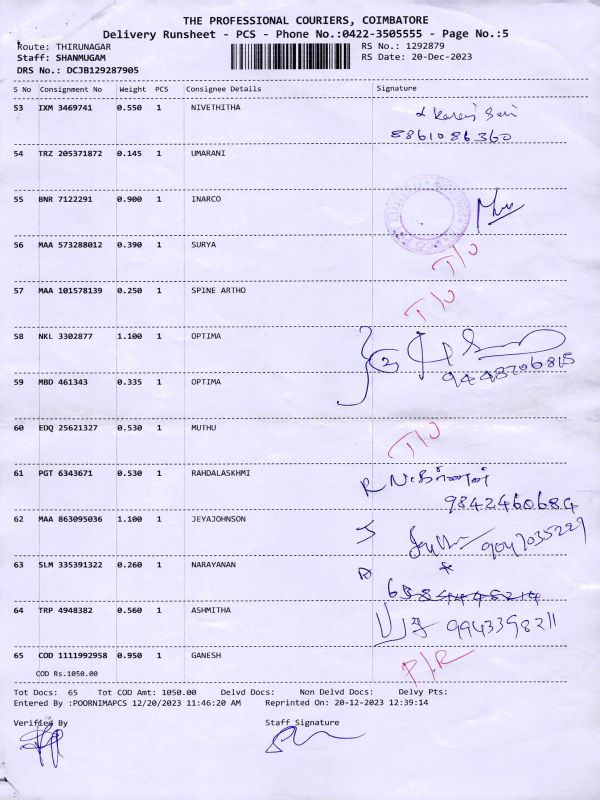 THE PROFESSIONAL COURIERS, COIMBATORE
Delivery Runsheet - PCS - Phone No.:0422-3505555 - Page No.:5
Route: THIRUNAGAR RS No.: 1292879
Staff: SHANMUGAM RS Date: 20-Dec-2023
DRS No.: DCJB129287905
S No Consignment No Weight PCS Consignee Details Signature
53 IXM 3469741 0.550 1 NIVETHITHA
8861086360
54 TRZ 205371872 0.145 1 UMARANI
55 BNR 7122291 0.900 1 INARCO
56 MAA 573288012 0.390 1 SURYA T/O
57 MAA 101578139 0.250 1 SPINE ARTHO T/O
58 NKL 3302877 1.100 1 OPTIMA 2
59 MBD 461343 0.335 1 OPTIMA
60 EDQ 25621327 0.530 1 MUTHU T/O
61 PGT 6343671 0.530 1 RAHDALASKHMI R
9842460684
62 MAA 863095036 1.100 1 JEYAJOHNSON 9047035229
63 SLM 335391322 0.260 1 NARAYANAN
64 TRP 4948382 0.560 1 ASHMITHA 9943398211
65 COD 1111992958 0.950 1 GANESH P/R
COD Rs.1050.00
Tot Docs: 65 Tot COD Amt: 1050.00 Delvd Docs: Non Delvd Docs: Delvy Pts:
Entered By :POORNIMAPCS 12/20/2023 11:46:20 AM Reprinted On: 20-12-2023 12:39:14
Verified By Staff Signature